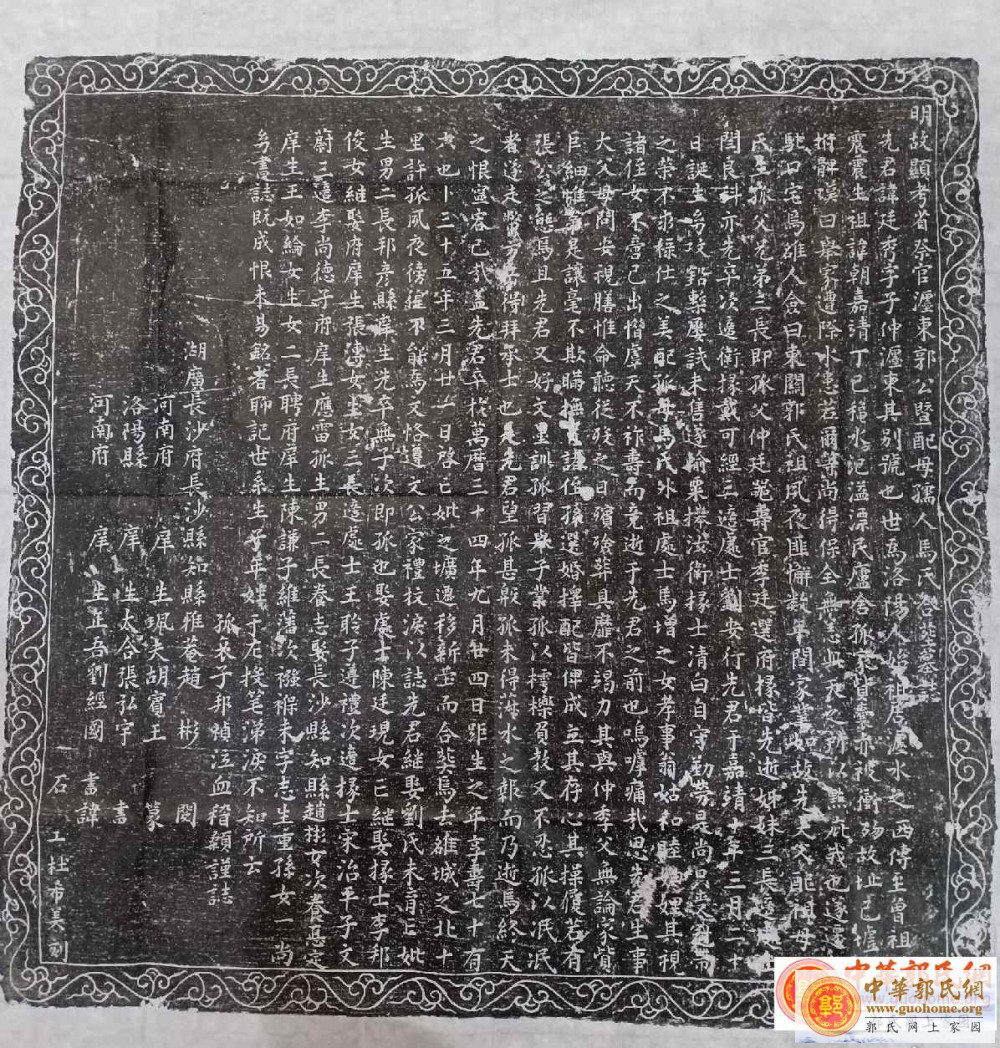 明故顯考省祭官瀍東郭公暨配母孺人馬氏合葬墓誌
先君諱廷秀字子仲瀍東其別號也世為洛陽人始祖居瀍水之西傳至曾祖
震震生祖諱朝嘉靖丁巳穐水汜溢漂民廬舍孤家貲橐亦被衝殤故址已墟
拊髀嘆曰舉家遭際水患若爾等尚得保全無恙此天之所以點庇我也遂遷
駝口宅焉雄人僉曰東關郭氏祖夙夜匪懈數年間家業如故先大父配祖母
氏生孤父兄弟三長即孤父仲廷蒞壽官季廷選府掾皆先逝姊妹三長適處士
閆良科亦先卒次適衛掾戴可經三適處士劉安行先君于嘉靖十年三月二十
日誕生焉攻鉛槧屢試未售遂輸粟授汝衛掾士清白自守勤勞是尚只受
之榮不求祿仕之美配孤母馬氏外祖處士馬增之女孝事翁姑和睦妯娌其視
諸侄女不啻己出憯虖天不祚壽而竟逝于先君之前也嗚嘑痛扎思先君生事
大父母問安視膳惟命聽從歿之日殯殮葬具靡不竭力其與仲季父無論家貲
巨細惟 是讓毫不欺瞞撫 諸侄孫選婚擇配皆俾成立其存心其操優若有
張公之態焉且先君又好文墨訓孤習舉子業孤以樗櫟負教又不忍孤以泯泯
者遂走 得拜承士也是先君望孤甚殷孤未得涓水之報而乃逝焉終天
之恨寧容已我蓋先君卒於萬曆三十四年九月廿四日距生之年享壽七十有
六也卜三十五年三月廿 日啓亡妣之壙遷移新塋而合葬焉去雄城之北十
里許孤夙夜傍徨不能為文恪遵文公家禮抆淚以誌先君繼娶劉氏未育亡妣
生男二長邦彥縣庠生先卒無子次即孤也娶處士陳廷現女亡繼娶掾士李邦
俊女維娶府庠生張濤女生女三長適處士王聆子遵禮次適掾士宋治平子文
蔚三適李尚德子府庠生應雷孤生男二長養志娶長沙縣知縣趙彬女次養惪定
庠生王如綸女生女二長聘府庠生陳謙子維藩次襁褓未字志生重孫女一尚
幼畫誌既成恨未易銘者聊記世系生子年娃于左援筆涕淚不知所云
孤哀子邦禎泣血稽顙謹誌
湖廣長沙府長沙縣知縣雄菴趙彬閱
河南府庠生珮夫胡賓王篆
洛陽縣庠生太合張弘宇書
河南府庠生正吾劉經國書諱
石工杜希美刻
中華郭氏網
www.guohome.org
郭氏網上家園